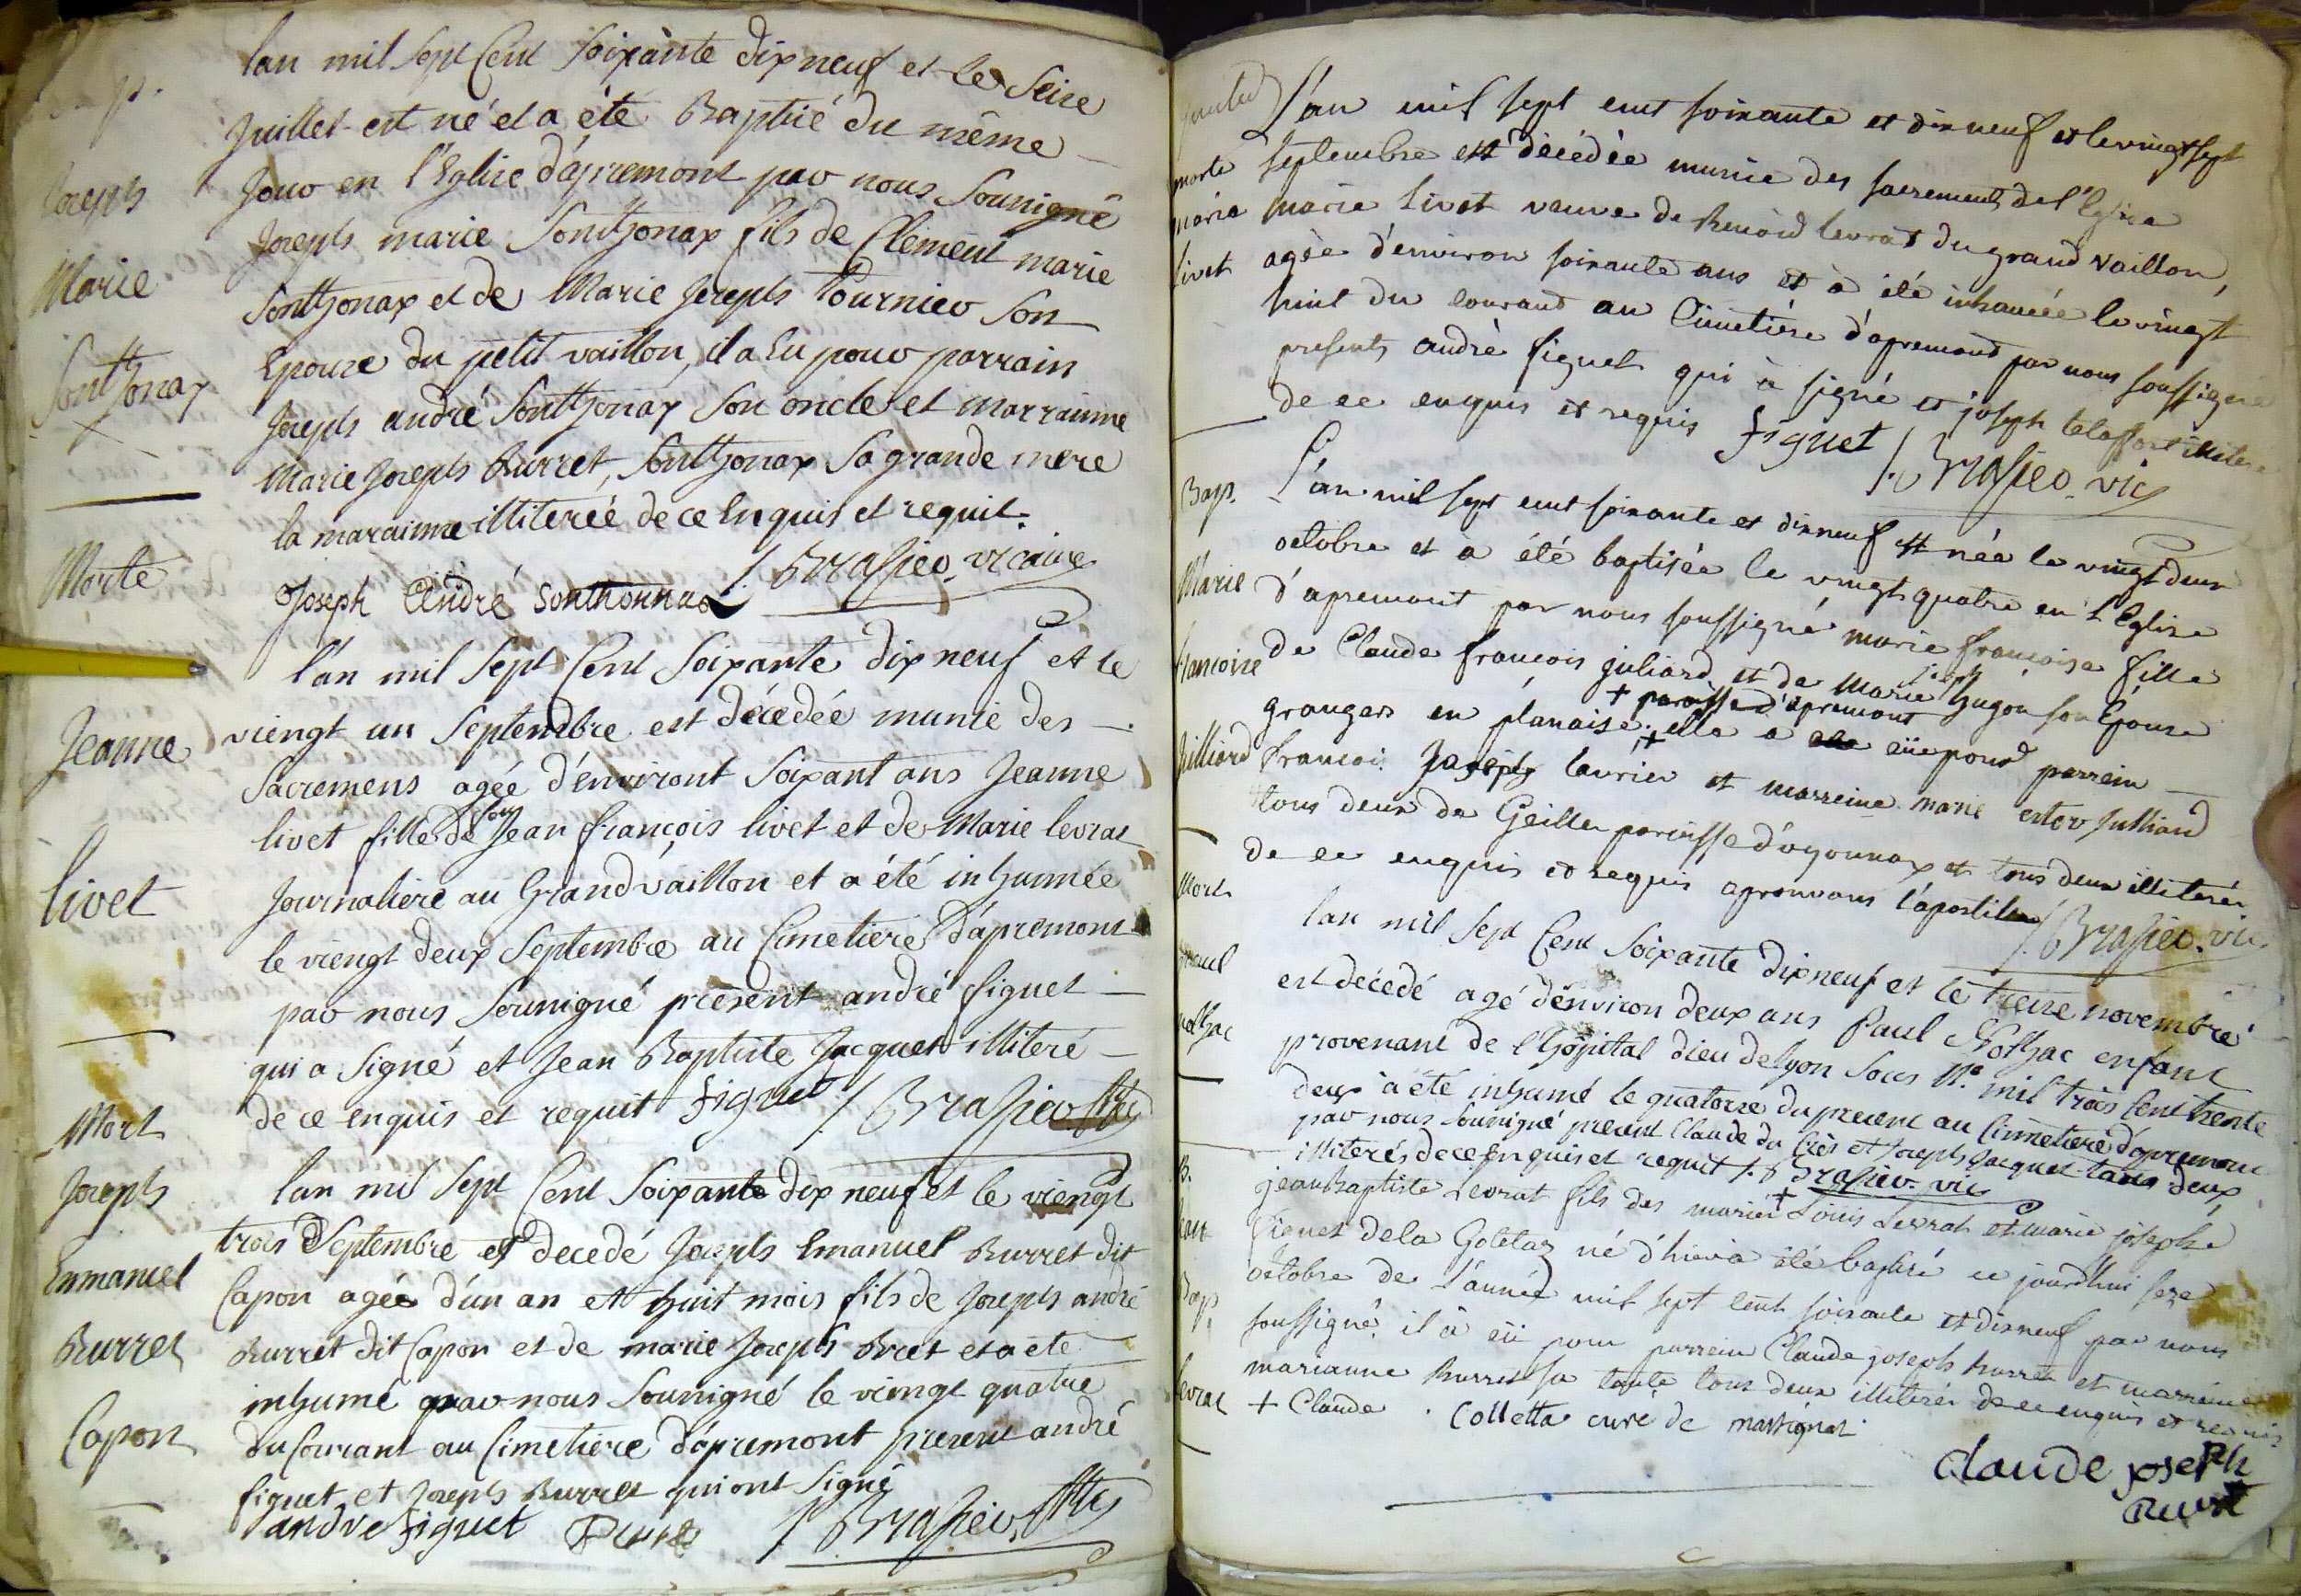 lan mil Sept Cent Soixante dix neuf et le Seise
Juillet est né et a été Baptisé du même
Jour en l'Eglise d'apremont par nous Sousigné
Joseph marie Sonthonax fils de Clément marie
Sonthonax et de Marie Joseph Tournier Son
Epouse du petit vaillon, il a Eu pour parrain
Joseph andré Sonthonax Son oncle et marrainne
Marie Joseph Burret, Sonthonax Sa grande mere
la marainne illiterée de ce Enquis et requit.
Joseph André Sonthonnax /. Brasier vicaire
Joseph
Marie
Sonthonax
Morte
Jeanne
livet
l'an mil Sept Cent Soixante dix neuf et le
viengt un Septembre est décédée munie des
Sacremens agée d'environt Soixant ans Jeanne
livet fille de feu Jean françois livet et de Marie levrat
Journaliere au Grand vaillon et a été inhummée
le viengt deux Septembre au Cimetiere d'apremont
par nous Sousigné présent andré figuet
qui a Signé et Jean Baptiste Jacquet illiteré
de ce enquis et requit figuet /. Brasier
Mort
Joseph
Enmanuel
Burret
Capon
lan mil Sept Cent Soixante dix neuf et le viengt
trois Septembre est decedé Joseph Emanuel Burret dit
Capon agée d'un an et huit mois fils de Joseph andré
Burret dit Capon et de marie Joseph Bret et a été
inhumé par nous Sousigné le viengt quatre
du Courant au Cimetiere d'apremont present andré
figuet et Joseph Burret qui ont Signé
andre figuet Burret /. Brasier
L'an mil sept cent soixante et dix neuf et le vingt sept
septembre est décédée munie des sacrements de l'Eglise
marie livet veuve de Benoid levrat du grand vaillon,
agée d'environ soixante ans et a été inhumée le vingt
huit du courant au Cimetière d'apremont par nous soussigné
presents andrè figuet qui à signé et joseph illitere
de ce enquis et requis figuet /. Brasier vic
morte
marie
livet
Bap.
Marie
francoise
Julliard
L'an mil sept cent soixante et dix neuf est née le vingt deux
octobre et à été baptisée le vingt quatre en l'Eglise
d'apremont par nous soussigné marie françoise fille
de Claude francois juliard et de Marie joseph hugon son Epouse
grangers en planaise + paroisse d'apremont + elle a eüe pour parrein
francois Joseph laurier et marreine marie ester Julliard
tous deux de Geille paroisse d'oyonnax et tous deux illiterés
de ce enquis et requis aprouvans l'apostille /. Brasier vic
Mort
lan mil Sept Cent Soixante dix neuf et le treise novembre
est décedé agé d'environ deux ans Paul enfant
provenant de l'hopital dieu de lyon Sous N.º mil trois Cent trente
deux à été inhumé le quatorze du present au Cimetiere d'apremont
par nous Sousigné present Claude du Crès et Joseph Jacquet tous deux
illiterés de ce Enquis et requit /. Brasier vic
B.
Jean
Bap.
levrat
jean Baptiste Levrat fils des mariés + Louis Levrat et marie josephe
figuet de la Goletaz né d'hier à été baptisé ce jourdhui seze
octobre de l'année mil sept cent soixante et dix neuf par nous
soussigné il à eü pour parrein Claude joseph burret et marreine
marianne burret sa tante tous deux illiterés de ce enquis et requis
+ Claude . Colletta curé de martignat
Claude joseph
Burret